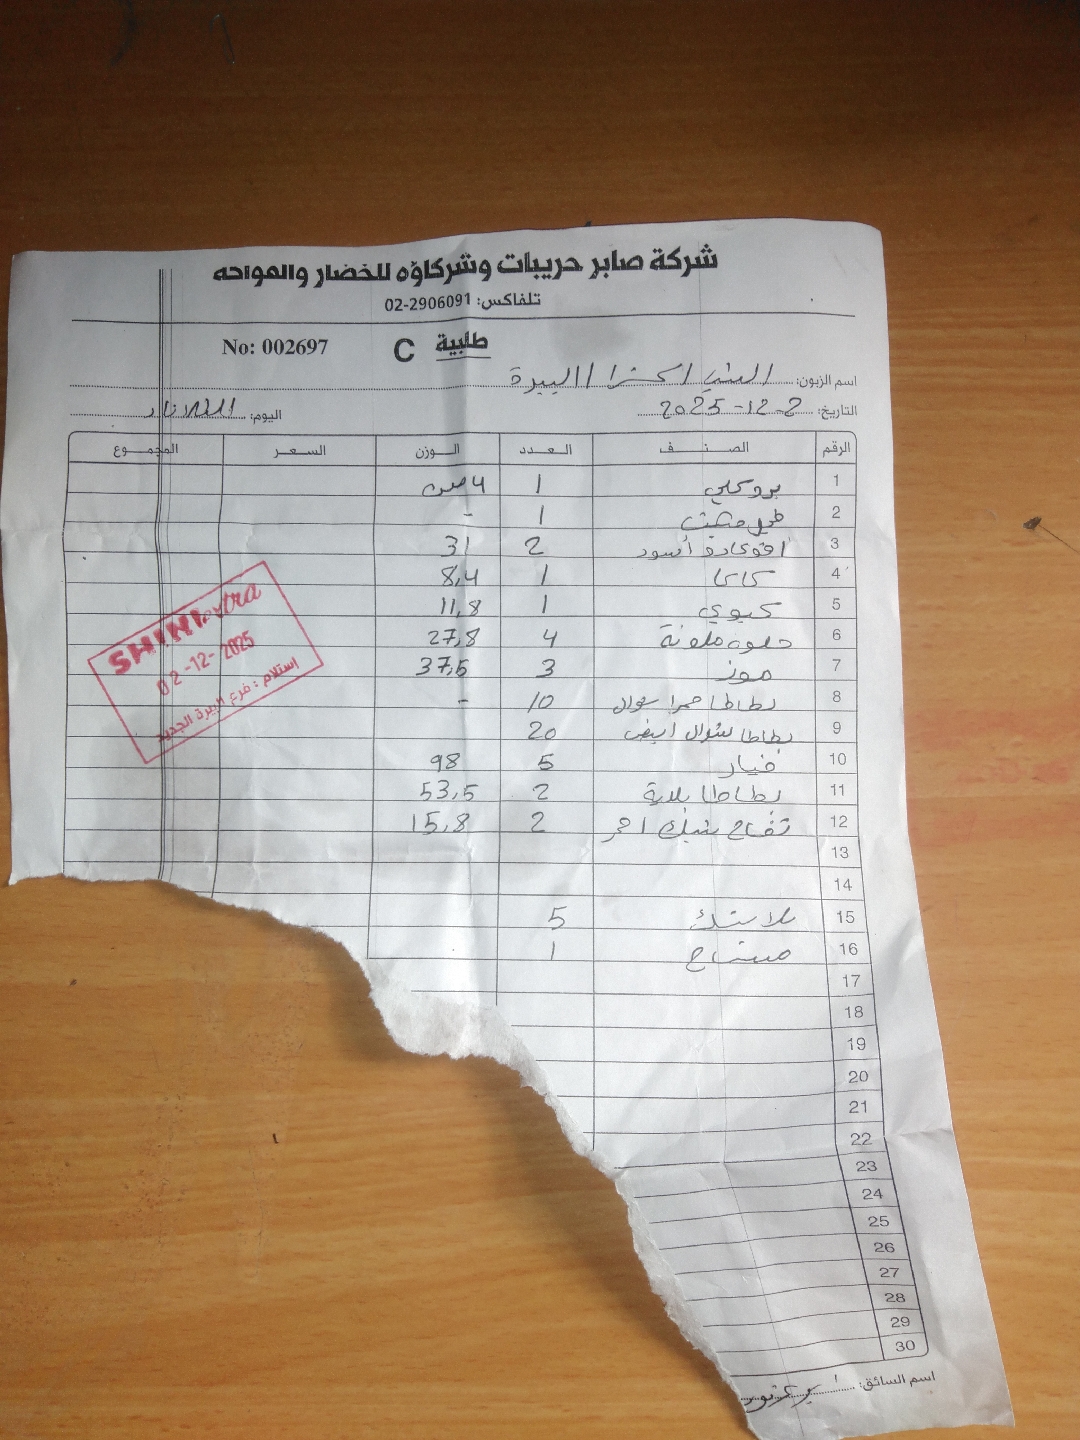 شركة صابر حريبات وشركاؤه للخضار والفواكه
تلفاكس: 02-2906091
No: 002697 C طلبية
اسم الزبون: الشني اكسترا / البيرة
التاريخ: 2-12-2025 اليوم: الثلاثاء
الرقم الصنف العدد الوزن السعر المجموع
1 بروكلي 1 4
2 1 -
3 افوكادو أسود 2 31
4 كاكا 1 8,4
5 كيوي 1 11,8
6 حلوه ملونة 4 27,8
7 موز 3 37,5
8 بطاطا حمرا شوال 10 -
9 بطاطا شوال ابيض 20
10 خيار 5 98
11 بطاطا بلدية 2 53,5
12 تفاح بنك احمر 2 15,8
13
14
15 بلاستك 5
16 مشتاح 1
17
18
19
20
21
22
23
24
25
26
27
28
29
30
اسم السائق:
SHINI extra
02-12-2025
استلام: فرع البيرة الجديد